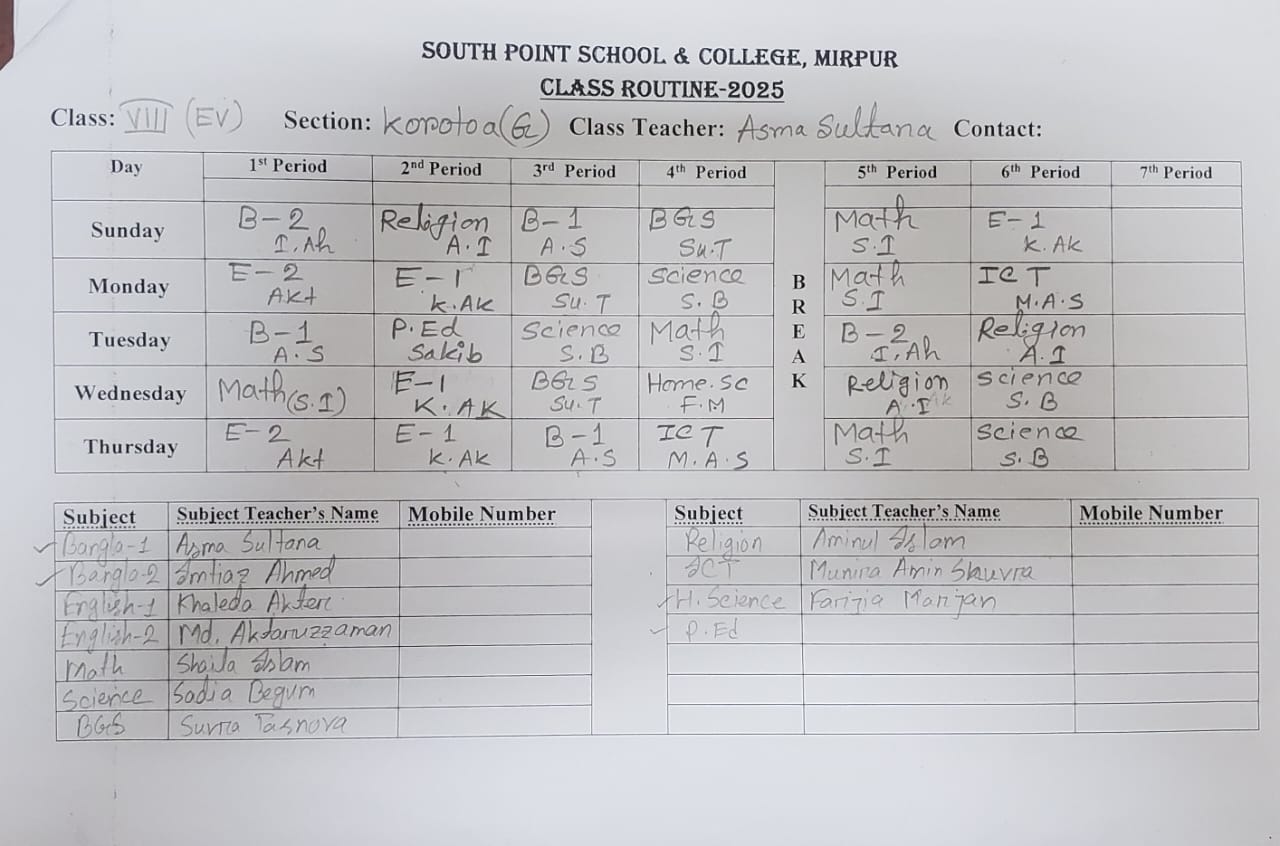 SOUTH POINT SCHOOL & COLLEGE, MIRPUR
CLASS ROUTINE-2025
Class: VIII (EV) Section: Korotoa(G) Class Teacher: Asma Sultana Contact:
Day 1st Period 2nd Period 3rd Period 4th Period BREAK 5th Period 6th Period 7th Period
Sunday B-2 Religion B-1 BGS Math E-1
I.Ah A.I A.S Su.T S.I K.AK
Monday E-2 E-1 BGS Science Math ICT
Akt K.AK Su.T S.B S.I M.A.S
Tuesday B-1 P.Ed Science Math B-2 Religion
A.S Sakib S.B S.I I.Ah A.I
Wednesday Math(S.I) E-1 BGS Home.Sc Religion Science
K.AK Su.T F.M A.I S.B
Thursday E-2 E-1 B-1 ICT Math Science
Akt K.AK A.S M.A.S S.I S.B
Subject Subject Teacher's Name Mobile Number Subject Subject Teacher's Name Mobile Number
Bangla-1 Asma Sultana Religion Aminul Islam
Bangla-2 Imtiaz Ahmed ICT Munira Amin
English-1 Khaleda Akter H.Science Farizia Marijan
English-2 Md. Aktaruzzaman P.Ed
Math Shaila Islam
Science Sadia Begum
BGS Suvra Tasnova